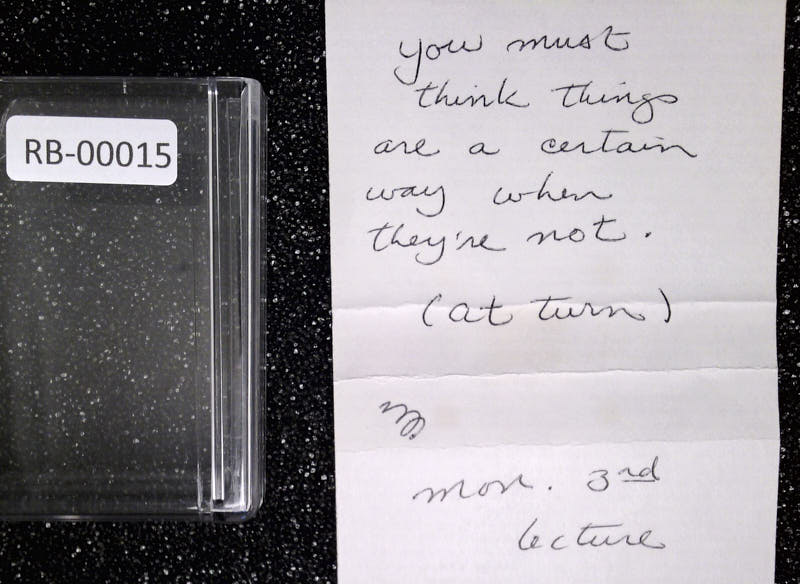 RB-00015
you must
think things
are a certain
way when
they're not.
(at turn)
mon. 3rd
lecture